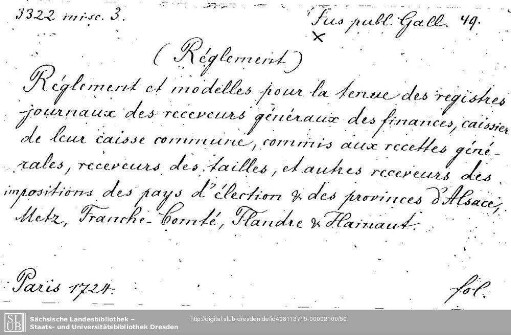 3322 misc. 3.
Jus publ. Gall. 49.
×
(Réglement)
Réglement et modelles pour la tenue des registres
journaux des receveurs généraux des finances, caissier
de leur caisse commune, commis aux recettes géné-
rales, receveurs des tailles, et autres receveurs des
impositions des pays d'élection & des provinces d'Alsace,
Metz, Franche-Comté, Flandre & Hainaut.
Paris 1724.
fol.
SLUB
Sächsische Landesbibliothek –
Staats- und Universitätsbibliothek Dresden